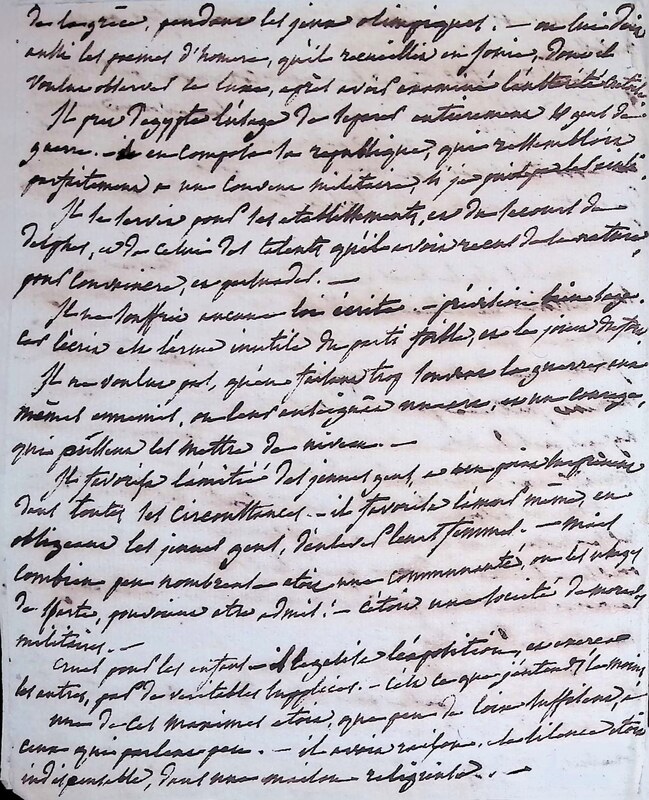 de la grèce, pendant les jeux olimpiques. — on lui doit
aussi les poemes d'homere, qu'il recueillit en jonie, dont il
voulut observer le luxe, après avoir examiné l'austérité
Il prit d'egypte l'usage de separer entierement les gens de
guerre. — il en composa sa republique, qui ressembloit
parfaitement a un couvent militaire, si je puis
Il se servit pour ses etablissements, et du secours de
delphes, et de celui des talents qu'il avoit recus de la nature,
pour convaincre, et persuader. —
Il ne souffrit aucune loi écrite. — précaution bien sage.
car l'écrit est l'arme inutile du parti foible, et le jouet du fort
Il ne voulut pas, qu'en faisant trop souvent la guerre aux
mêmes ennemis, on leur enseignât un art, et un courage,
qui pussent les mettre de niveau. —
Il favorisa l'amitié des jeunes gens, et
dans toutes les circonstances. — il favorisa l'amour même, en
obligeant les jeunes gens, d'enlever leurs femmes. — mais
combien peu nombreuse etoit une communauté, où les usages
de sparte, pouvoient etre admis! — c'étoit une société de moines
militaires. —
Cruel pour les enfans — il legalisa l'exposition, et exerca
les autres, par de veritables supplices. — c'est ce que j'entends le moins
une de ces maximes etoit, que peu de loix suffisent, a
ceux qui parlent peu. — il avoit raison. le silence etoit
indispensable, dans une maison religieuse. —